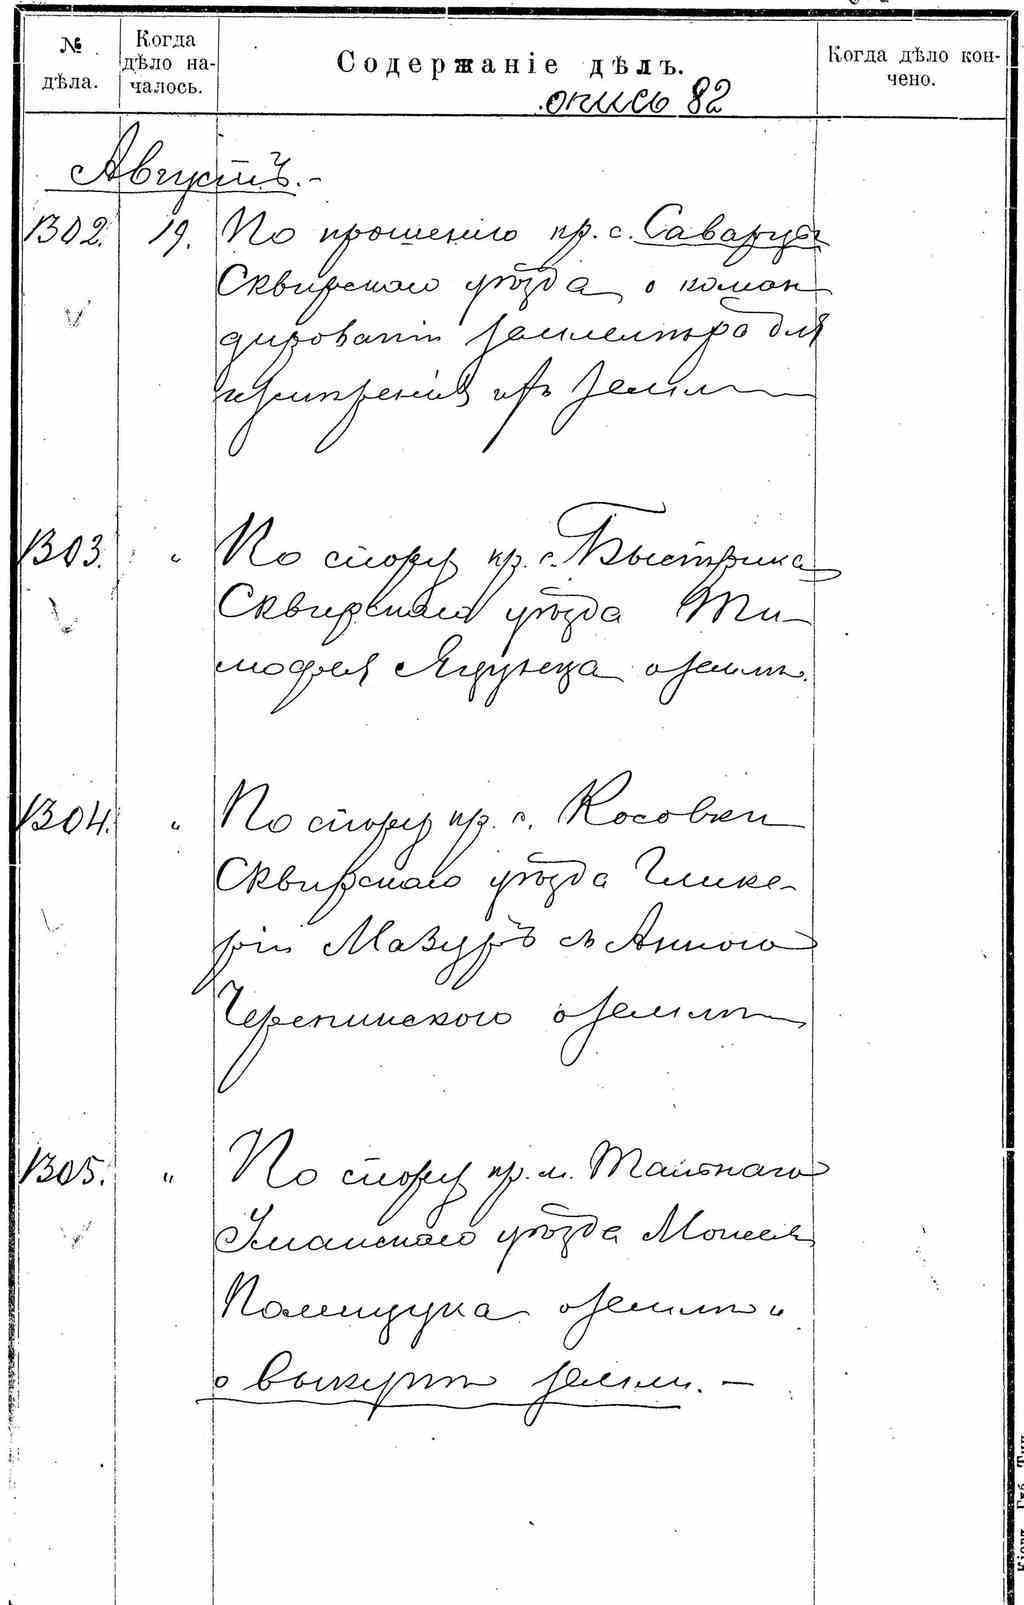 № дѣла.
Когда дѣло на-
чалось.
Содержаніе дѣлъ.
Когда дѣло кон-
чено.
опись 82
Августъ.-
1302. 19. По прошенію кр. с. Саварцы
Сквирскаго уѣзда о коман
дированіи землемѣра для
измѣренія их земли
1303. " По спору кр. с. Быстрика
Сквирскаго уѣзда Ти-
мофея Ядунца о землѣ.
1304. " По спору кр. с. Косовки
Сквирскаго уѣзда Глике-
ріи Мазуръ съ Анною
Черепинского о землѣ
1305. " По спору кр. м. Тальнаго
Уманскаго уѣзда Моисея
Полищука о землѣ и
о выкупѣ земли. -
Кіевъ. Губ. Тип.